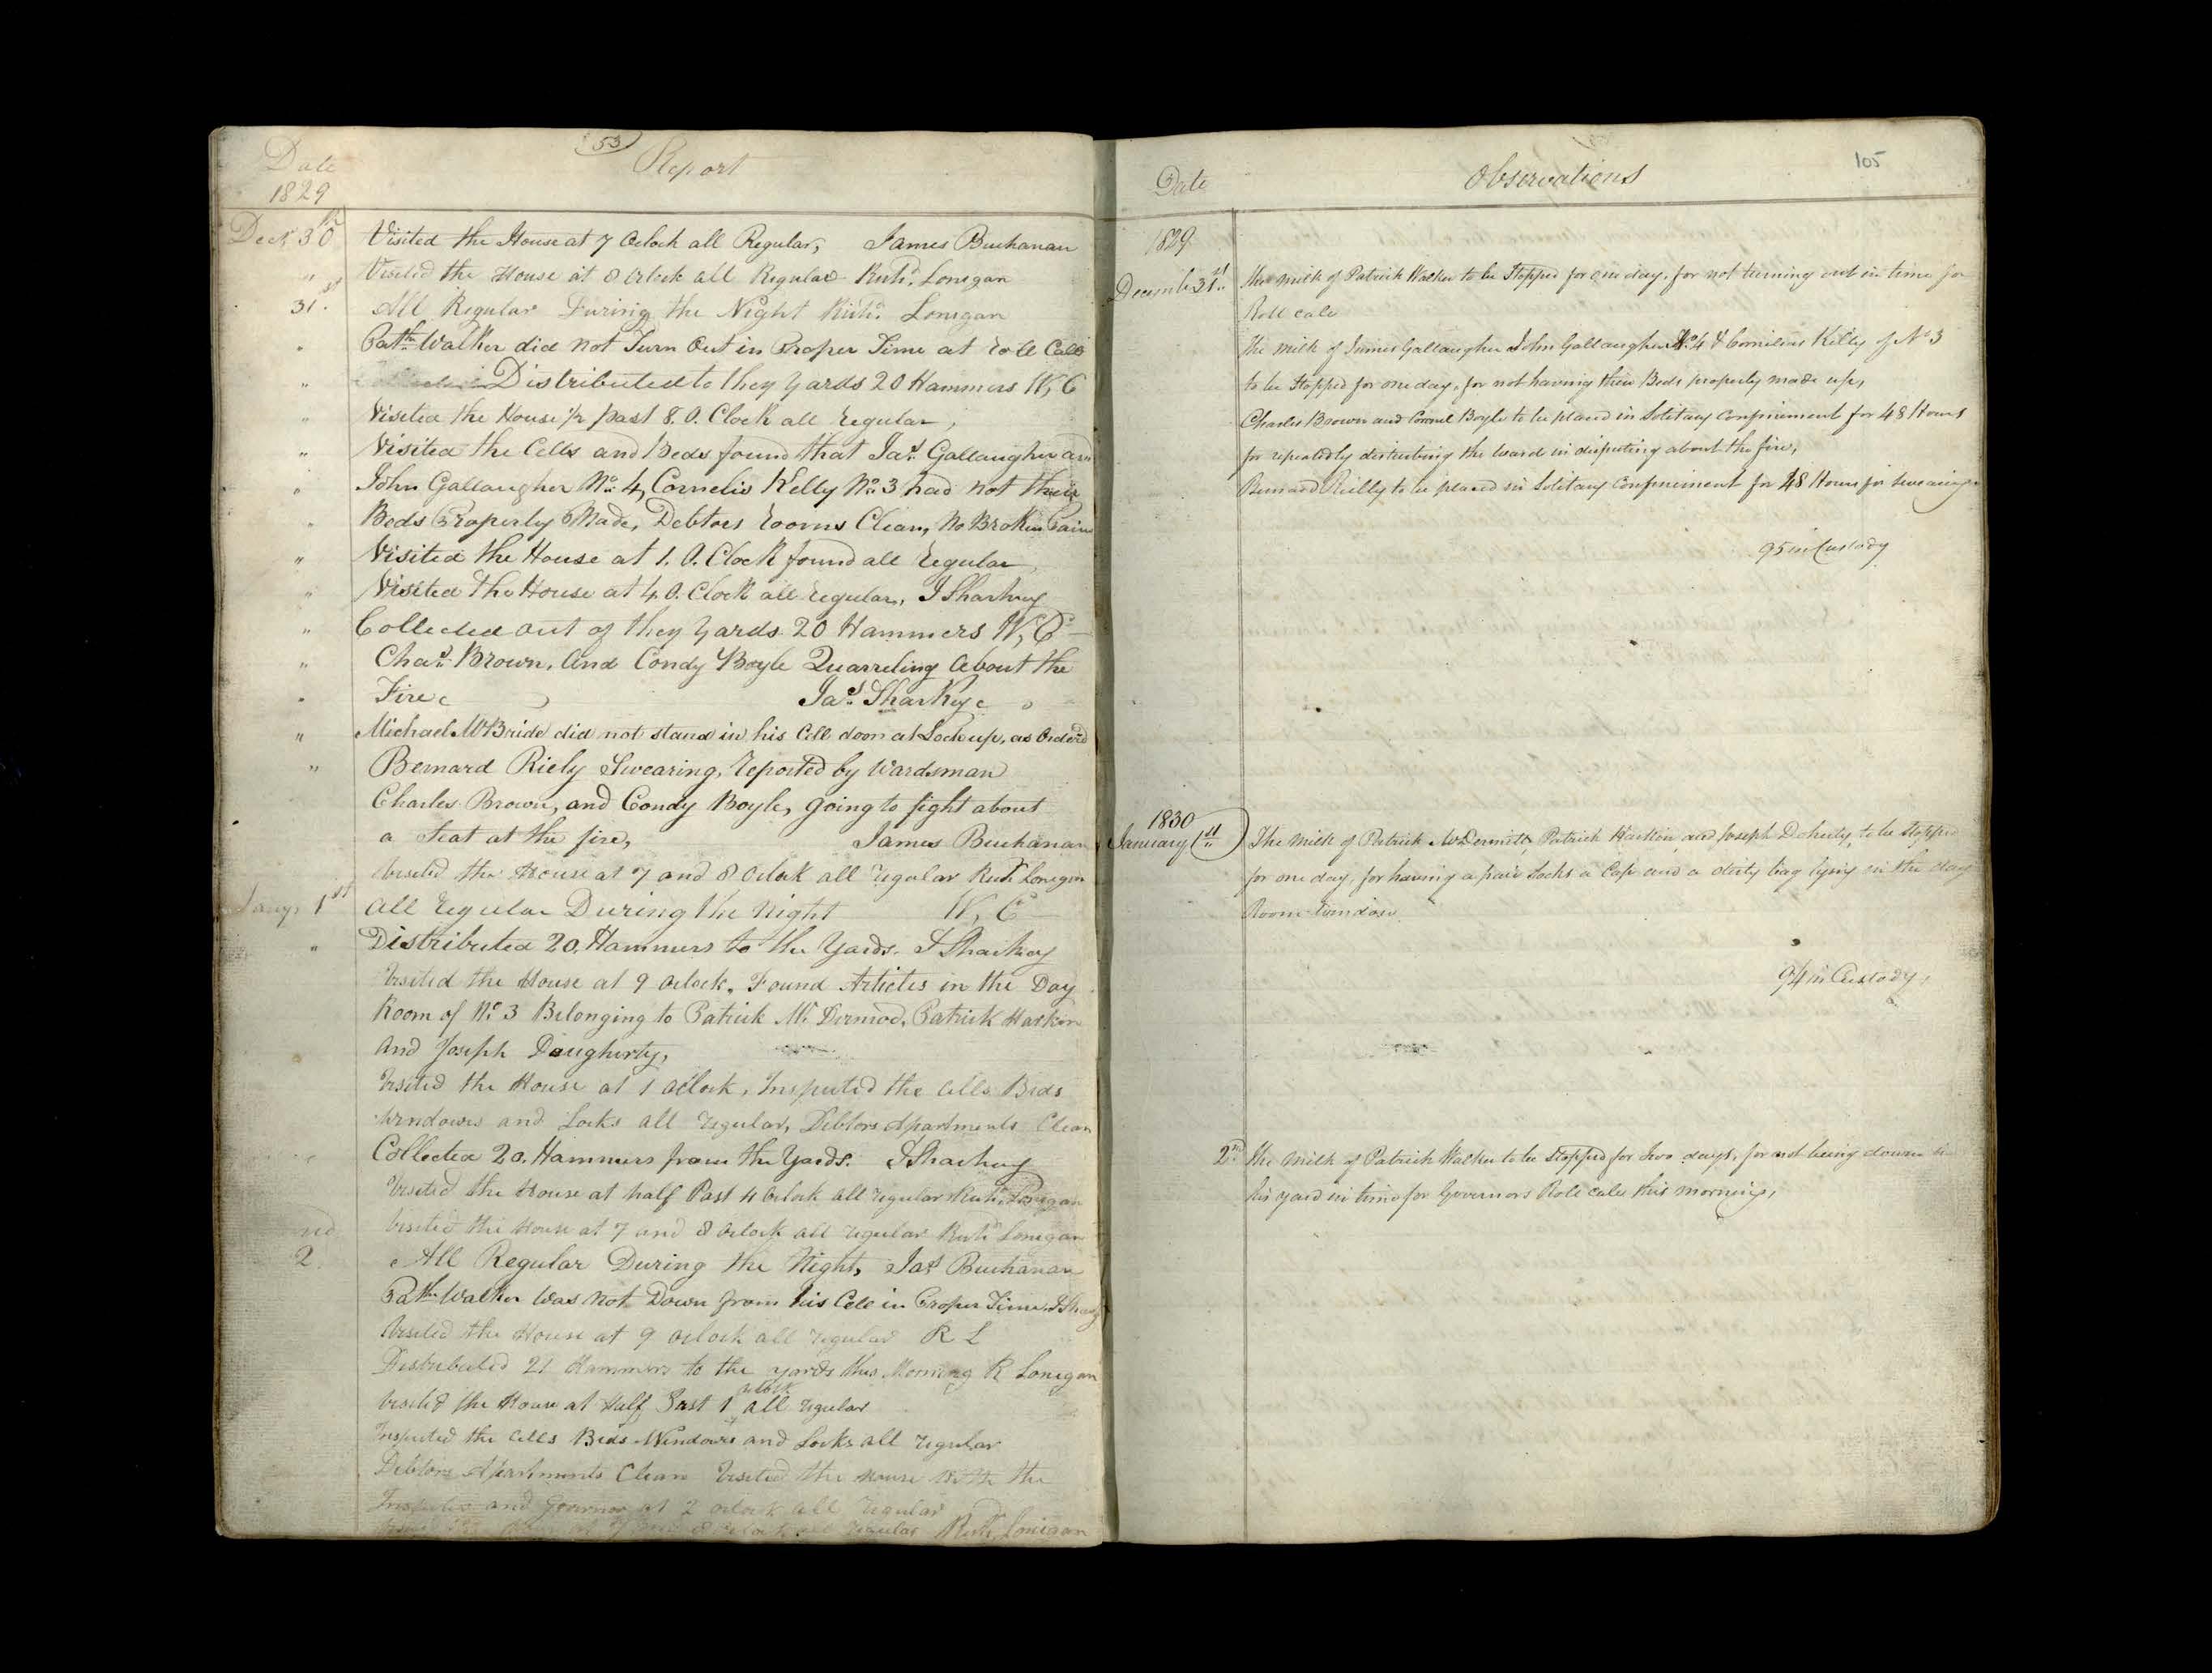 (53)
Date Report
1829
Decr 30th Visited the House at 7 Oclock all Regular, James Buchanan
" Visited the House at 8 Oclock all Regular Richd. Lonegan
31st. All Regular During the Night Richd. Lonegan
" Patk. Walker did not Turn Out in Proper Time at Roll Call
" Distributed to they yards 20 Hammers W, C
" Visited the House 1/2 past 8. O. Clock all regular,
" Visited the Cells and Beds found that Jas. Gallaugher and
" John Gallaugher No. 4, Cornelis Kelly No. 3 had not their
" Beds Properly Made, Debtors rooms Clean, No Broken Pains
" Visited the House at 1. O. Clock found all regular,
" Visited the House at 4 O. Clock all regular, J Sharkey
" Collected out of they yards 20 Hammers W, C
" Chas. Brown, and Condy Boyle Quarreling about the
" Fire Jas. Sharkey
" Michael McBride did not stand in his Cell door at Lock up, as Ordered
" Bernard Riely Swearing, reported by Wardsman
Charles Brown, and Condy Boyle, going to fight about
a Seat at the fire, James Buchanan
Visited the House at 7 and 8 Oclock all regular Richd Lonegan
Jany. 1st all regular During the night W, C
" Distributed 20. Hammers to the Yards. J Sharkey
Visited the House at 9 Oclock. Found Articles in the Day
Room of No. 3 Belonging to Patrick Mc. Dermod, Patrick Harkin
and Joseph Daugherty,
Visited the House at 1 Oclock, Inspected the Cells Beds
Windows and Locks all regular, Debtors Apartments Clean
Collected 20. Hammers from the Yards. J Sharkey
Visited the House at half Past 4 Oclock all regular Richd. Lonegan
Visited the House at 7 and 8 Oclock all regular Richd Lonegan
2nd. All Regular During the Night, Jas Buchanan
Patk. Walker Was Not Down from his Cell in Proper Time. J Sharkey
Visited the House at 9 Oclock all regular R L
Distributed 21 Hammers to the yards this Morning R Lonegan
Visited the House at Half Past 1 oclock all regular
Inspected the Cells Beds Windows and Locks all regular
Debtors Apartments Clean Visited the House With the
Inspector and Governor at 2 oclock all regular
8 oclock all regular Richd Lonegan
105
Date Observations
1829
December 31st. The milk of Patrick Walker to be Stopped for one day, for not turning out in time for
Roll call
The milk of James Gallaugher John Gallaugher No. 4 & Cornelius Kelly of No 3
to be Stopped for one day, for not having their Beds properly made up,
Charles Brown and Boyle to be placed in Solitary Confinement for 48 Hours
for repeatedly disturbing the ward in disputing about the fire,
Bernard Reilly to be placed in Solitary Confinement for 48 Hours for swearing
95 in Custody
1830
January 1st. The Milk of Patrick McDermitt, Patrick Harkin, and Joseph Doherty, to be stopped
for one day, for having a pair Socks a Cap and a dirty bag lying in the day
Room window.
94 in Custody,
2nd. The Milk of Patrick Walker to be Stopped for two days, for not being down in
his yard in time for Governors Role call this morning,